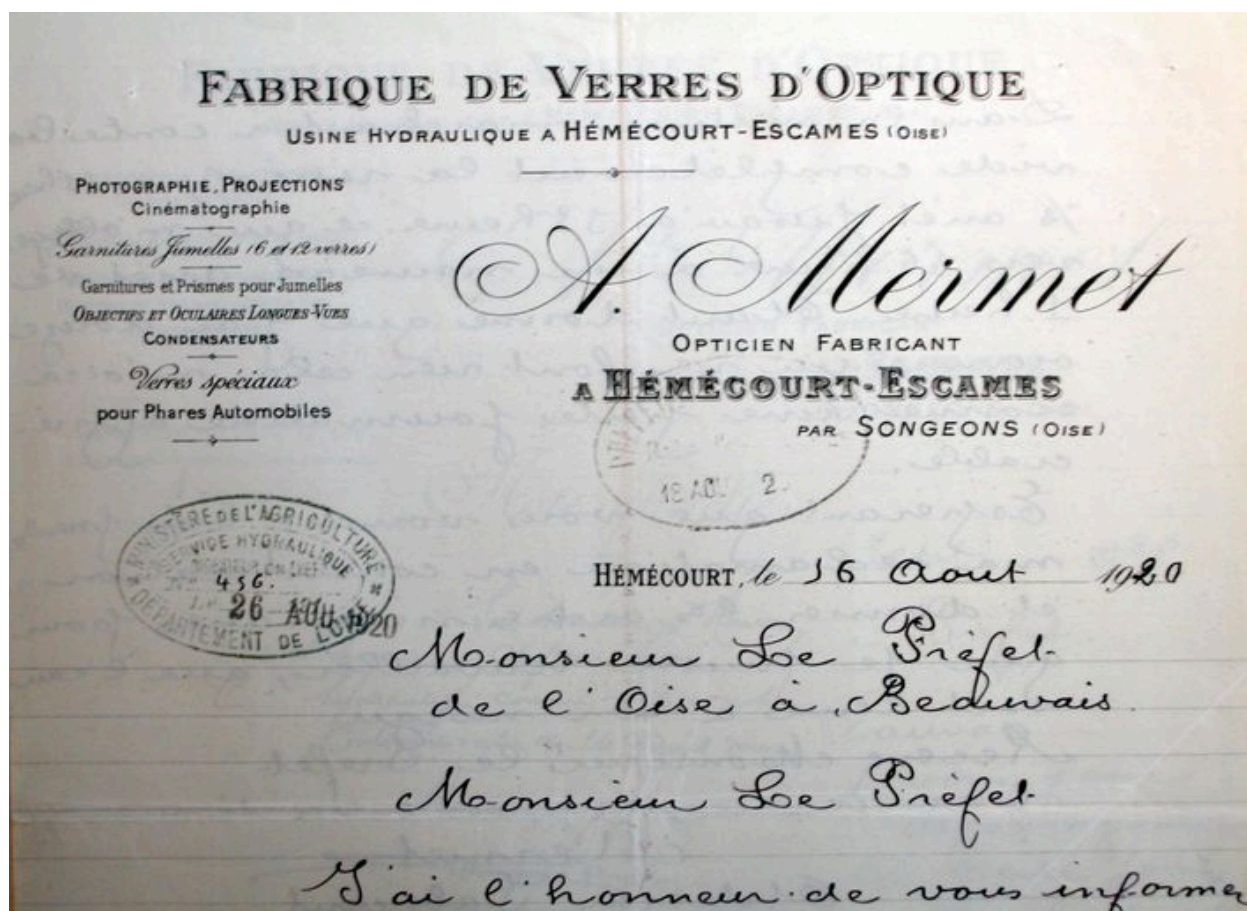 FABRIQUE DE VERRES D'OPTIQUE
USINE HYDRAULIQUE A HÉMÉCOURT-ESCAMES (OISE)
PHOTOGRAPHIE, PROJECTIONS
Cinématographie
Garnitures Jumelles (6 et 12 verres)
Garnitures et Prismes pour Jumelles
OBJECTIFS ET OCULAIRES LONGUES-VUES
CONDENSATEURS
Verres spéciaux
pour Phares Automobiles
A. Mermet
OPTICIEN FABRICANT
A HÉMÉCOURT-ESCAMES
PAR SONGEONS (OISE)
18 AOU 2
MINISTÈRE DE L'AGRICULTURE
SERVICE HYDRAULIQUE
456.
26 AOU 1920
DÉPARTEMENT DE L'OISE
HÉMÉCOURT, le 16 Aout 1920
Monsieur Le Préfet
de l'Oise à Beauvais.
Monsieur Le Préfet
J'ai l'honneur de vous informer